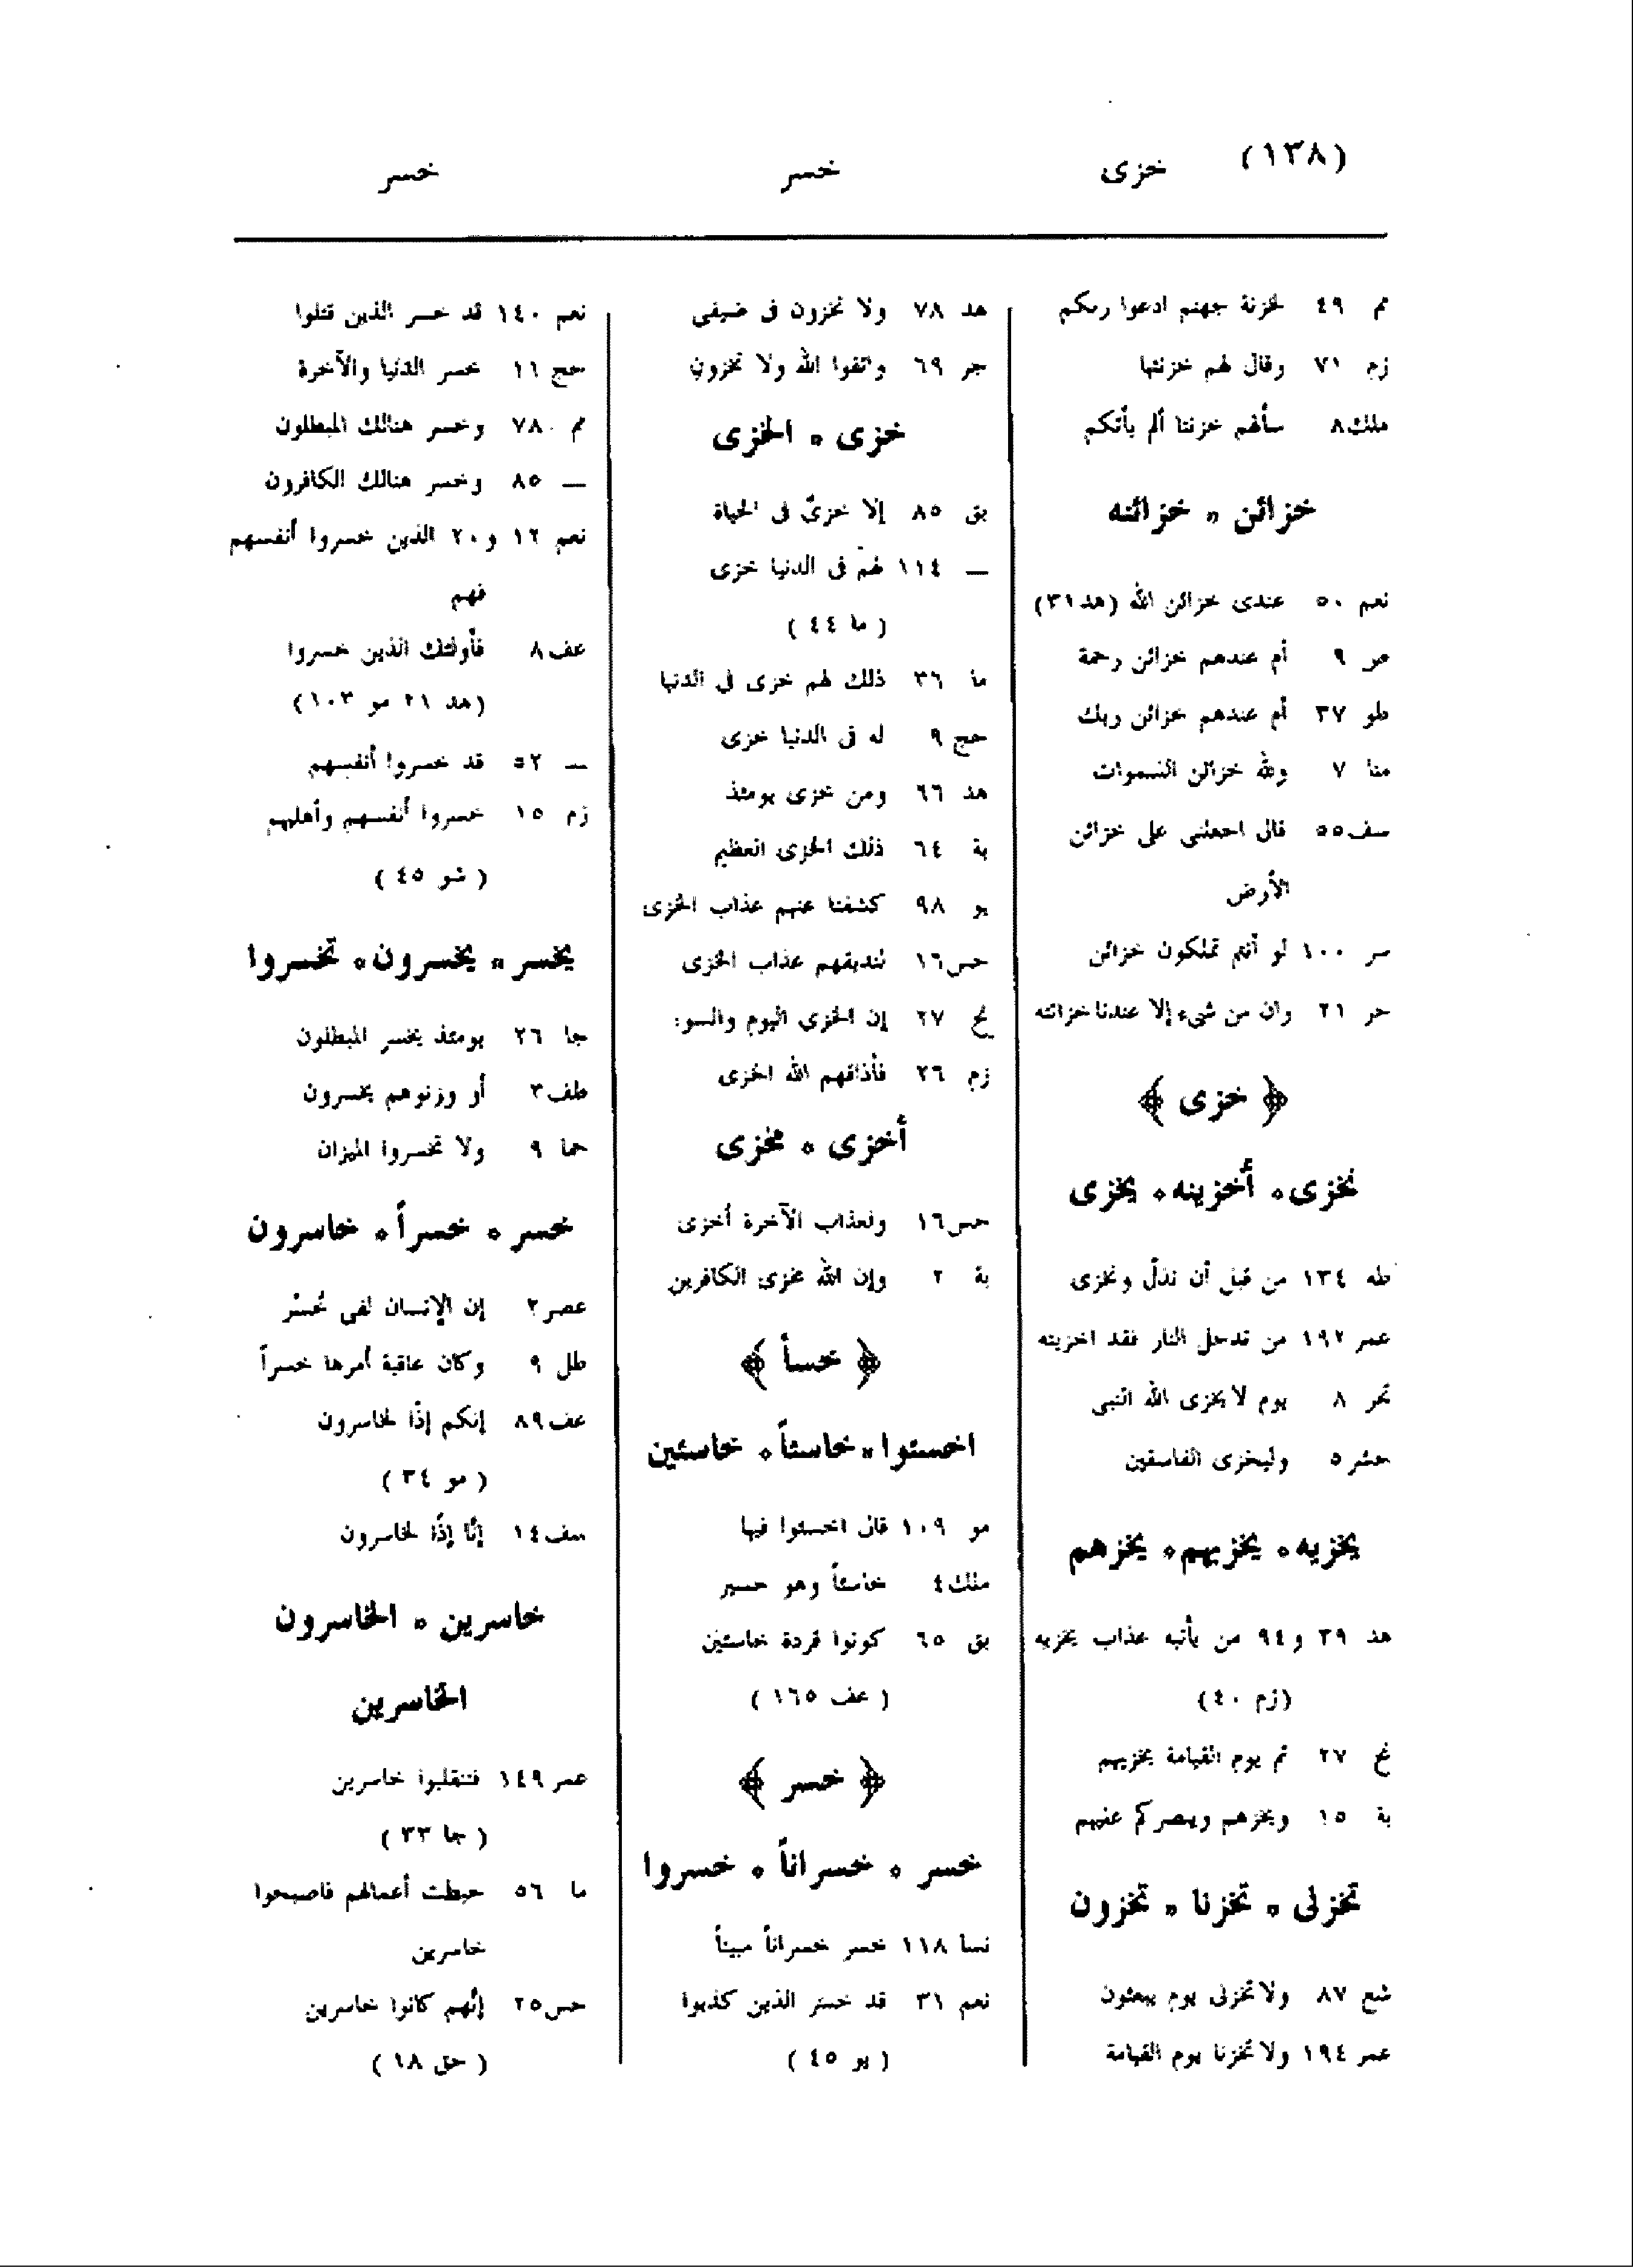 (١٣٨) خزى خسر خسر
مم ٤٩ لخزنة جهنم ادعوا ربكم
زم ٧١ وقال لهم خزنتها
ملك ٨ سألهم خزنتنا ألم يأتكم
خزائن ٥ خزائنه
نعم ٥٠ عندى خزائن الله (هد ٣١)
ص ٩ أم عندهم خزائن رحمة
طو ٣٧ أم عندهم خزائن ربك
منا ٧ ولله خزائن السموات
سف ٥٥ قال اجعلنى على خزائن
الأرض
سر ١٠٠ لو أنتم تملكون خزائن
حر ٢١ وان من شىء إلا عندنا خزائنه
﴿ خزى ﴾
نخزى ٥ أخزيته ٥ يخزى
طه ١٣٤ من قبل أن نذلّ ونخزى
عمر ١٩٢ من تدخل النار فقد اخزيته
تحر ٨ يوم لا يخزى الله النبى
حشر ٥ وليخزى الفاسقين
يخزيه ٥ يخزيهم ٥ يخزهم
هد ٣٩ و٩٤ من يأتيه عذاب يخزيه
(زم ٤٠)
نح ٢٧ ثم يوم القيامة يخزيهم
بة ١٥ ويخزهم وينصركم عليهم
تخزنى ٥ تخزنا ٥ تخزون
شع ٨٧ ولا تخزنى يوم يبعثون
عمر ١٩٤ ولا تخزنا يوم القيامة
هد ٧٨ ولا تخزون فى ضيفى
جر ٦٩ واتقوا الله ولا تخزون
خزى ٥ الخزى
بق ٨٥ إلا خزىٌ فى الحياة
— ١١٤ لهم فى الدنيا خزى
( ما ٤٤ )
ما ٣٦ ذلك لهم خزى فى الدنيا
حج ٩ له فى الدنيا خزى
هد ٦٦ ومن خزى يومئذ
بة ٦٤ ذلك الخزى العظيم
يو ٩٨ كشفنا عنهم عذاب الخزى
حس ١٦ لنذيقهم عذاب الخزى
نح ٢٧ إن الخزى اليوم والسوء
زم ٢٦ فأذاقهم الله الخزى
أخزى ٥ مخزى
حس ١٦ ولعذاب الآخرة أخزى
بة ٢ وإن الله مخزى الكافرين
﴿ خسأ ﴾
اخسئوا ٥ خاسئاً ٥ خاسئين
مو ١٠٩ قال اخسئوا فيها
ملك ٤ خاسئاً وهو حسير
بق ٦٥ كونوا قردة خاسئين
( عف ١٦٥ )
﴿ خسر ﴾
خسر ٥ خسراناً ٥ خسروا
نسا ١١٨ خسر خسراناً مبيناً
نعم ٣١ قد خسر الذين كذبوا
( يو ٤٥ )
نعم ١٤٠ قد خسر الذين قتلوا
حج ١١ خسر الدنيا والآخرة
مم ٧٨ وخسر هنالك المبطلون
— ٨٥ وخسر هنالك الكافرون
نعم ١٢ و٢٠ الذين خسروا أنفسهم
فهم
عف ٨ فأولئك الذين خسروا
(هد ٢١ مو ١٠٣)
— ٥٢ قد خسروا أنفسهم
زم ١٥ خسروا أنفسهم وأهليهم
( شو ٤٥ )
يخسر ٥ يخسرون ٥ تخسروا
جا ٢٦ يومئذ يخسر المبطلون
طف ٣ أو وزنوهم يخسرون
حما ٩ ولا تخسروا الميزان
خسر ٥ خسراً ٥ خاسرون
عصر ٢ إن الإنسان لفى خُسْر
طل ٩ وكان عاقبة أمرها خسراً
عف ٨٩ إنكم إذًا لخاسرون
( مو ٣٤ )
سف ١٤ إنّا إذًا لخاسرون
خاسرين ٥ الخاسرون
الخاسرين
عمر ١٤٩ فتنقلبوا خاسرين
( جا ٣٣ )
ما ٥٦ حبطت أعمالهم فاصبحوا
خاسرين
حس ٢٥ إنّهم كانوا خاسرين
( حق ١٨ )